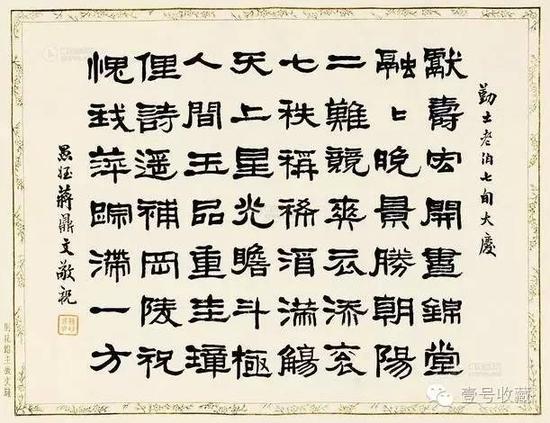 勤士老伯七旬大慶
獻壽宏開晝錦堂
融〻晚景勝朝陽
二難競爽添
七秩稱稀酒滿觴
天上星光瞻斗極
人間玉品重圭璋
俚詩遥補岡陵祝
愧我萍踪滯一方
愚侄蔣鼎文敬祝
壹号收藏